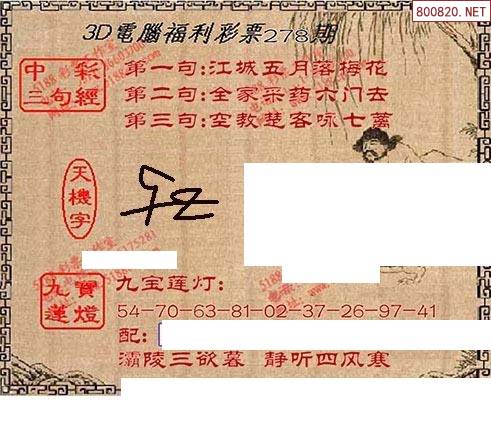 800820.NET
3D電腦福利彩票278期
中彩
三句經
第一句:江城五月落梅花
第二句:全家采药六门去
第三句:空教楚客咏七蓠
天機字
九寶
蓮燈
九宝莲灯:
54-70-63-81-02-37-26-97-41
配:
灞陵三欲暮 静听四风寒